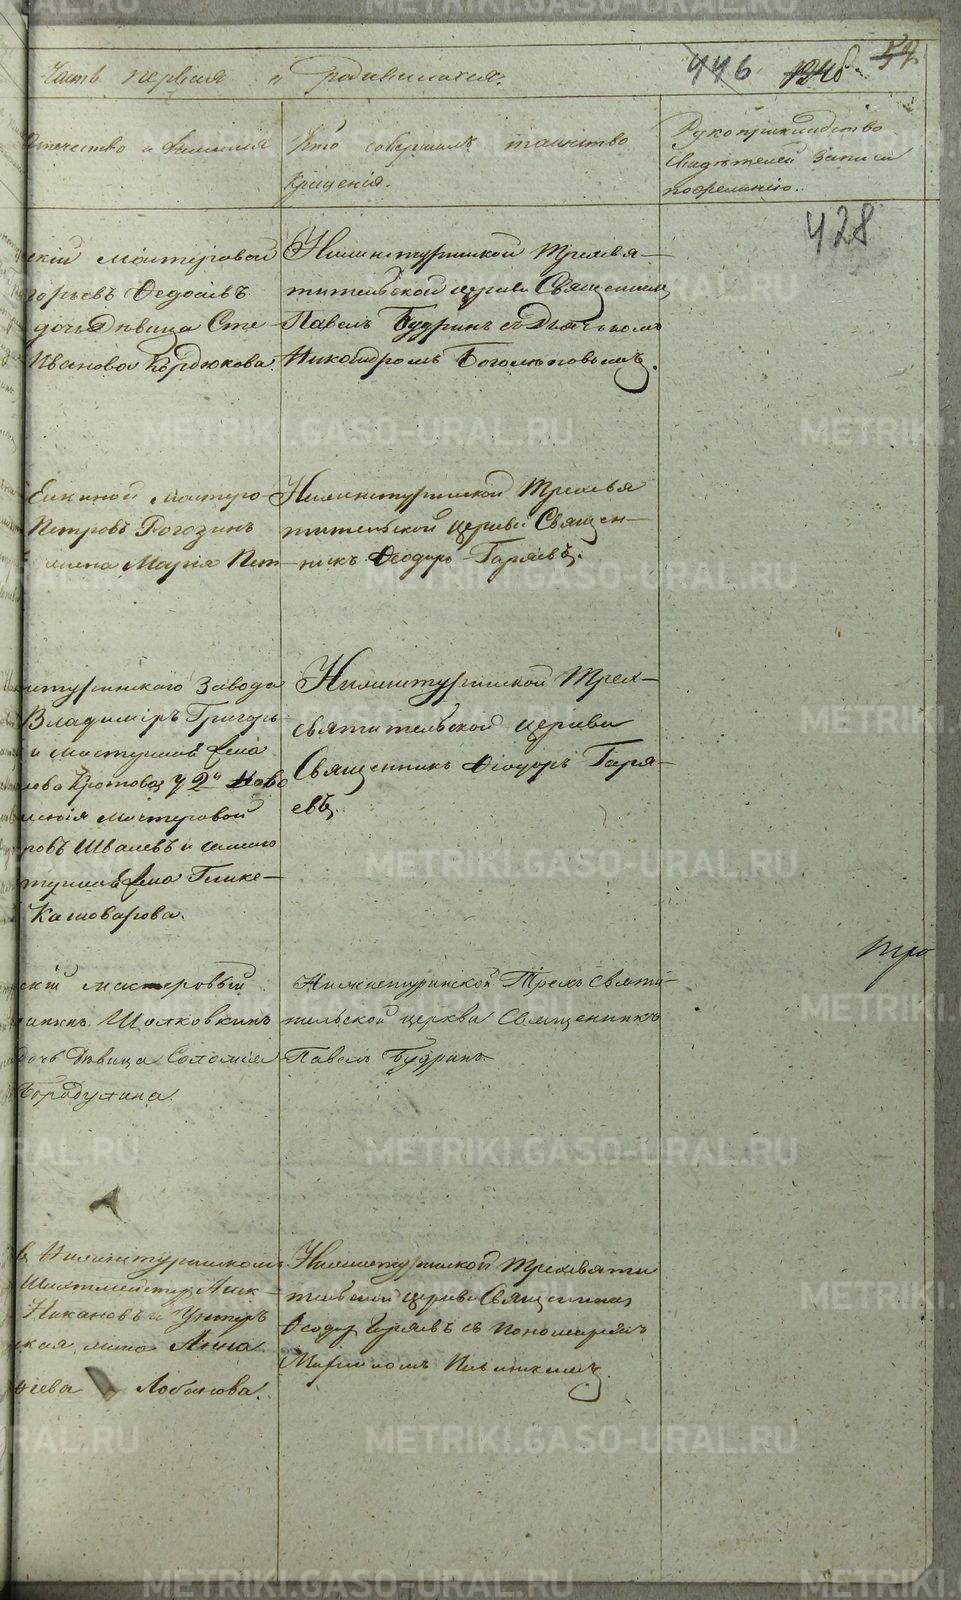 Часть первая о родившихся.
446
54
428
Отчество и фамилія
Кто совершалъ таинство
крещенія.
Рукоприкладство
свидѣтелей записи
по желанію.
скій мастеровой
горьевъ Федосѣевъ
дочь дѣвица Сте-
Иванова Бердюкова.
Нижнетуринской Трехсвя-
тительской церкви Священникъ
Павелъ Будринъ съ Дьячкомъ
Никандромъ Боголѣповымъ.
мастеро-
Петровъ Рогозинъ
жена Марія Пет-
Нижнетуринской Трехсвя
тительской церкви Священ-
никъ Ѳеодоръ Гаряевъ.
нетуринскаго завода
Владиміръ Григорь
и мастерская жена
Кротова, у 2й
мастеровой
ровъ Швалевъ и
жена Глике-
Кашоварова.
Нижнетуринской Трех-
святительской церкви
Священникъ Ѳеодоръ Гаря-
евъ.
скій мастеровый
Шолковкинъ
дочь дѣвица Соломія
Бородулина.
Нижнетуринской Трехъ Святи-
тельской церкви Священникъ
Павелъ Будринъ.
в Нижнетуринскомъ
Шихтмейстеръ
Никановъ и Унтеръ
ская жена Анна
ѣева Лобанова.
Нижнетуринской Трехсвяти
тельской церкви Священникъ
Ѳеодоръ Гаряевъ съ Пономаремъ
METRIKI.GASO-URAL.RU